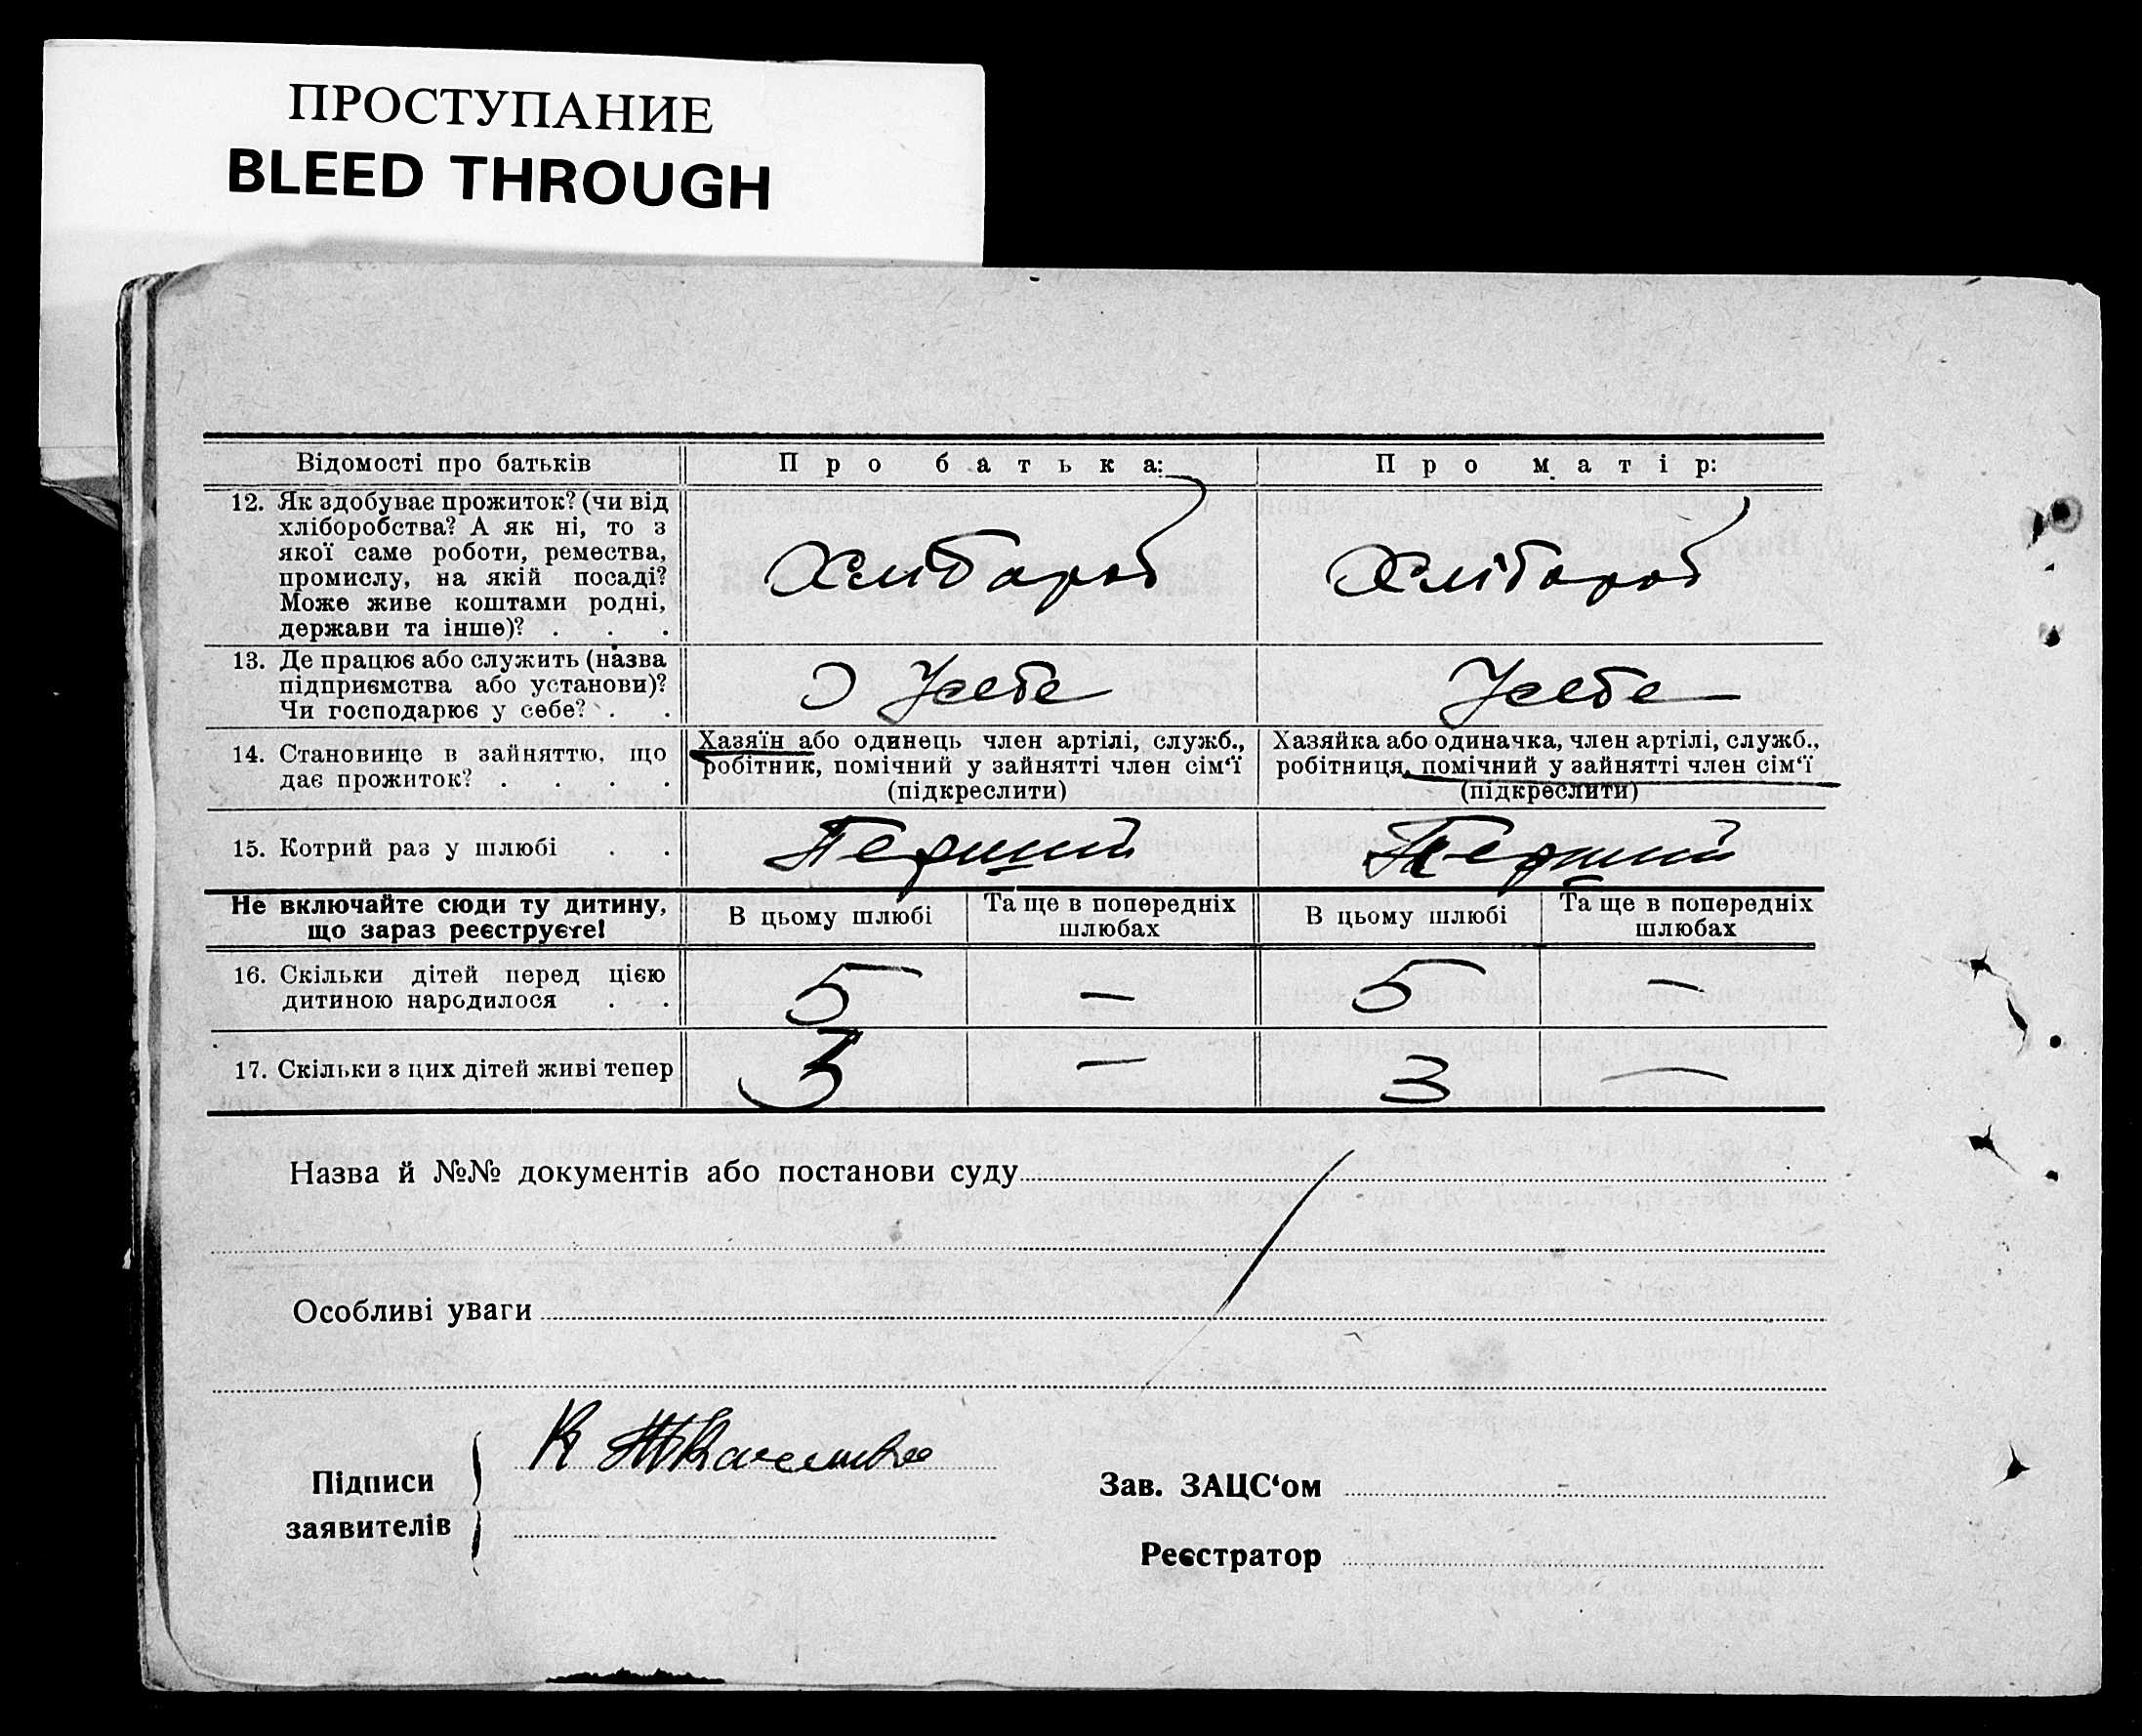 ПРОСТУПАНИЕ
BLEED THROUGH
Відомості про батьків
Про батька:
Про матір:
12. Як здобуває прожиток? (чи від
хліборобства? А як ні, то з
якої саме роботи, ремества,
промислу, на якій посаді?
Може живе коштами родні,
держави та інше)? . . .
Хлібороб
Хлібороб
13. Де працює або служить (назва
підприємства або установи)?
Чи господарює у себе? . .
У себе
У себе
14. Становище в зайняттю, що
дає прожиток? . . . .
Хазяїн або одинець член артілі, служб.,
робітник, помічний у зайнятті член сім‘ї
(підкреслити)
Хазяйка або одиначка, член артілі, служб.,
робітниця, помічний у зайнятті член сім‘ї
(підкреслити)
15. Котрий раз у шлюбі . .
Перший
Перший
Не включайте сюди ту дитину,
що зараз реєструєте!
В цьому шлюбі
Та ще в попередніх
шлюбах
В цьому шлюбі
Та ще в попередніх
шлюбах
16. Скільки дітей перед цією
дитиною народилося . .
5
—
5
—
17. Скільки з цих дітей живі тепер
3
—
3
—
Назва й №№ документів або постанови суду
Особливі уваги
Підписи
заявителів
К
Зав. ЗАЦС‘ом
Реєстратор